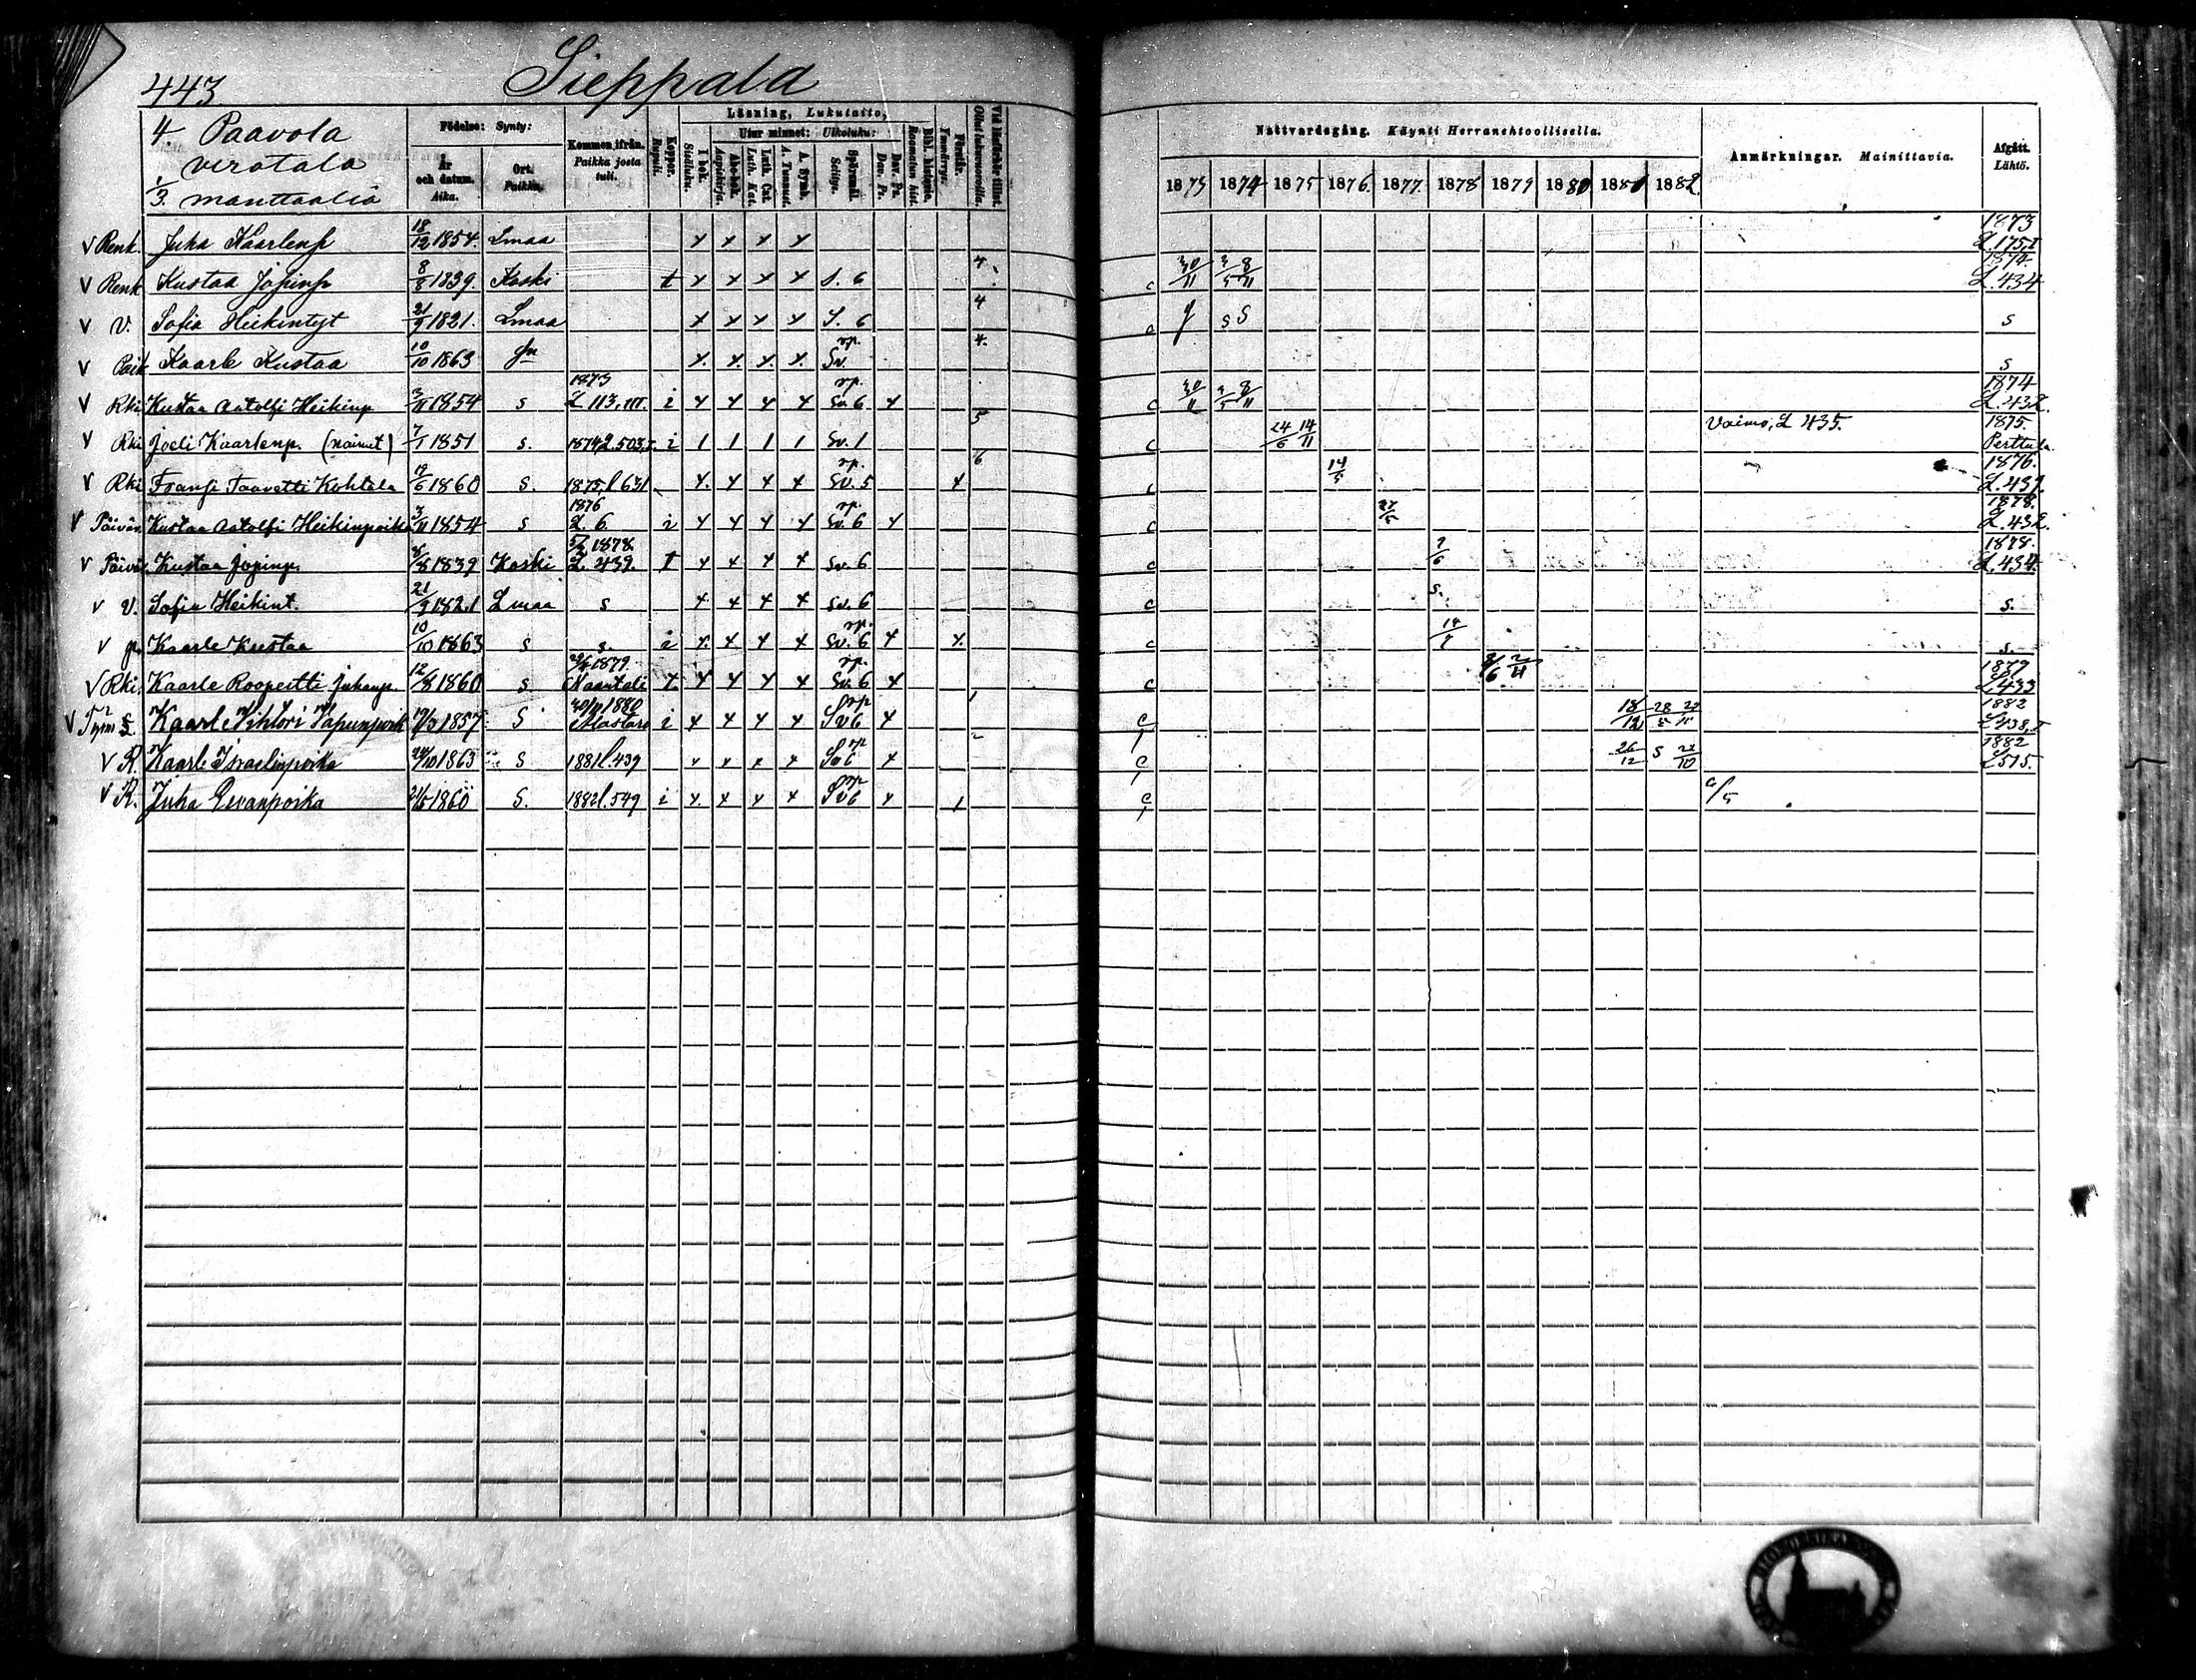 443 Sieppala
4. Paavola
verotalo
1/3. manttaalia
Födelse: Synty:
År och datum. Aika.
Ort. Paikka.
Kommen ifrån. Paikka josta tuli.
Koppor. Rupuli.
Läsning, Lukutaito,
I bok. Sisäluku.
Utur minnet: Ulkoluku:
Abc-bok. Aapiskirja.
Luth. Cat. Luth. Kat.
A. Symb. A. Tunnust.
Spörsmål. Selitys.
Dav. Ps. Dav. Ps.
Bibl. historie. Raamatun hist.
Förstår. Ymmärrys.
Vid läsförhör tillst. Ollut lukuvuoroilla.
Nattvardsgång. Käynti Herranehtoollisella.
1873 1874 1875 1876. 1877. 1878 1879 1880 1881 1882.
Anmärkningar. Mainittavia.
Afgått. Lähtö.
v Renk. Juha Kaarlenp 18/12 1854. Lmaa x x x x 1873 L.175.I
v Renk Kustaa Josinp 8/8 1839. Koski t x x x x S. 6 4. c 30/11 3/5 8/11 1874 L.434
v V. Sofia Heikintyt 21/9 1821. Lmaa x x x x S. 6 4 c s S s
v Poik Kaarle Kustaa 10/10 1863 x. x. x. x. rp. Sv. 4. s
v Rki Kustaa Aatolfi Heikinp 3/11 1854 s 1873 L 113. III. i x x x x rp. Sv. 6 x c 30/11 8/11 1874 L.432.
v Rki Joeli Kaarlenp. (nainut) 7/5 1851 s. 1874 L.503.I. i 1 1 1 1 Sv. 1 5 c 24/6 14/11 Vaimo, L 435. 1875. Perttula
v Rki Fransi Taavetti Kohtala 19/6 1860 s. 1875, L 631 x. x x x rp. Sv. 5 x 6 c 14/5 1876. L.437.
v Päivän Kustaa Aatolfi Heikinpoika 3/11 1854 s 1876 L. 6. i x x x x rp. Sv. 6 x c 1878. L.432.
v Päivä Kustaa Josinp. 8/8 1839 Koski 1878. L. 439. t x x x x Sv. 6 c 9/6 1878. L.434.
v V. Sofia Heikint. 21/9 1821 Lmaa s x x x x Sv. 6 c s. s.
v p. Kaarle Kustaa 10/10 1863 s s. i x. x x x rp. Sv. 6 x x. c s.
v Rki. Kaarle Roopertti Juhanp. 12/8 1860 s 1879. Naantali t. x x x x rp. Sv. 6 x c 8/6 2/11 1879 L433
v Kaarle Vihtori Tapunpoik 19/3 1857 S 30/11 1880 Alastaro i x x x x rp Sv6 x 1 c 18/12 28 22 1882 L438,I
v R. Kaarle Israelinpoika 24/10 1863 S 1881 l.439 x x x x rp Sv6 x 2 c 26/12 S 22/10 1882 L515.
v R. Juha Eevanpoika 21/5 1860 S. 1882 l.549 i x. x x x rp Sv6 x 1 c